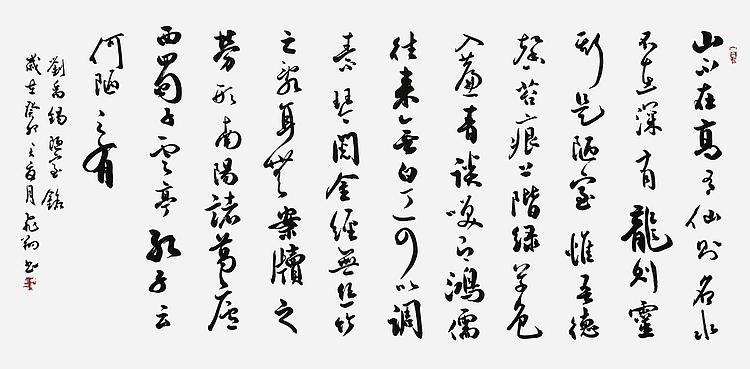 山不在高有仙則名水
不在深有龍則靈
斯是陋室惟吾德
馨苔痕上階綠草色
入簾青談笑有鴻儒
往來無白丁可以調
素琴閱金經無絲竹
之亂耳無案牘之
勞形南陽諸葛廬
西蜀子雲亭孔子云
何陋之有
劉禹錫陋室銘
歲在癸卯之月書